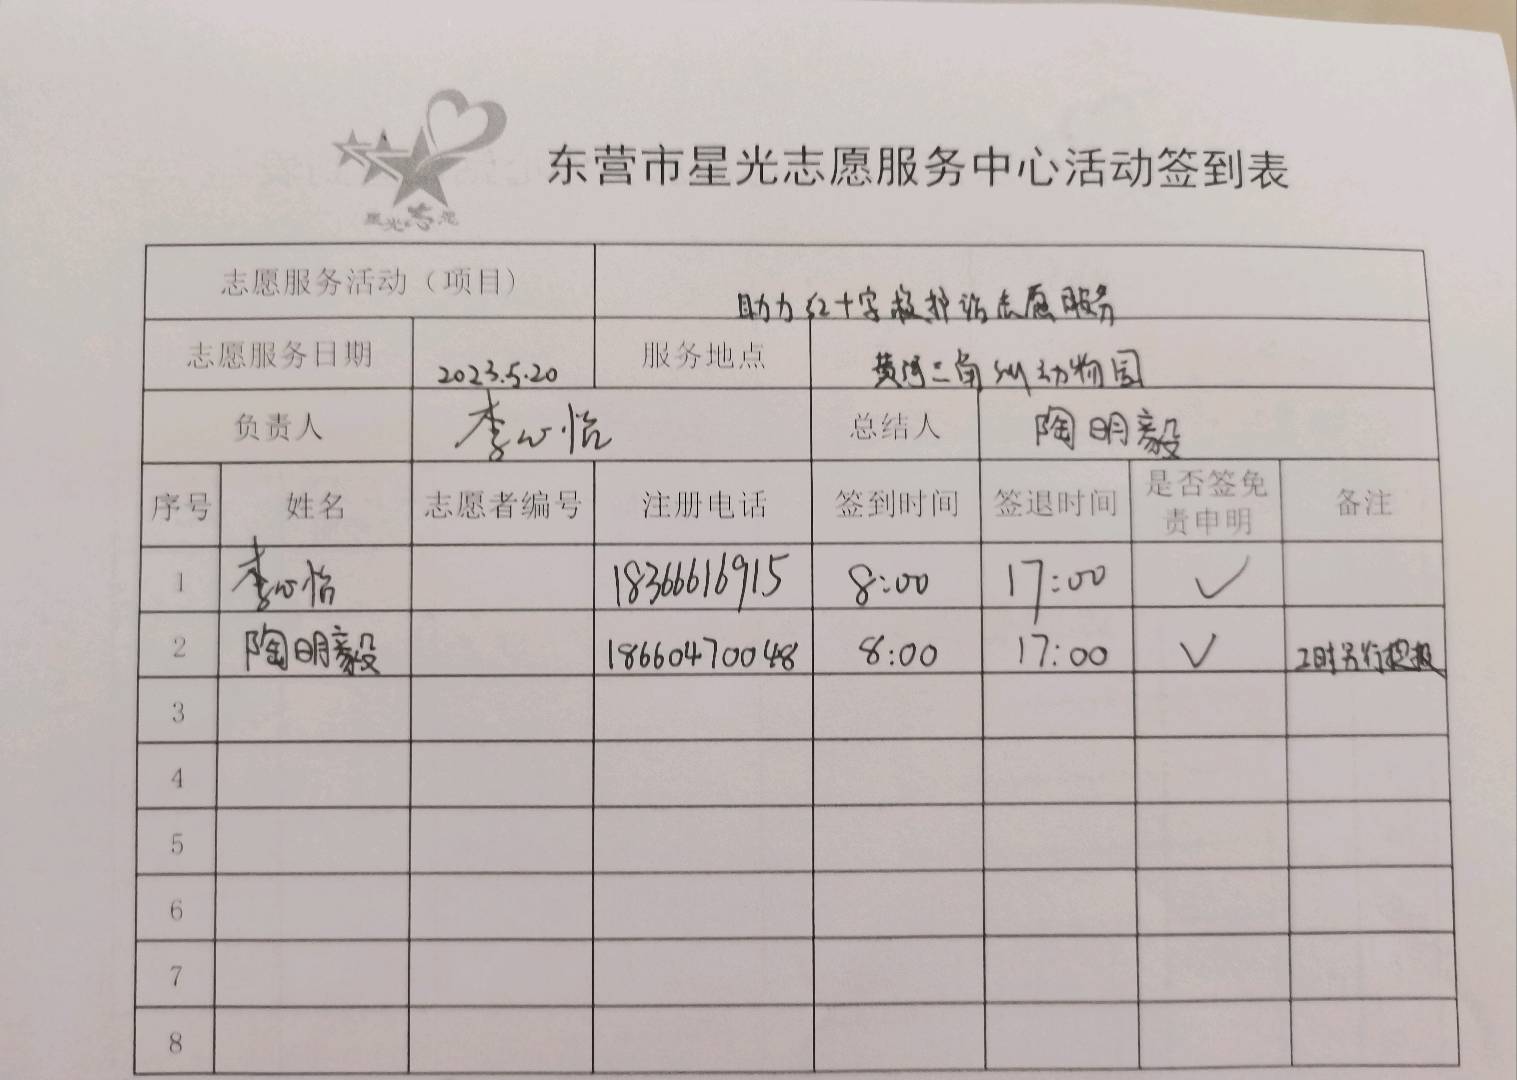 星光志愿
东营市星光志愿服务中心活动签到表
志愿服务活动（项目） 助力红十字救护站志愿服务
志愿服务日期 2023.5.20 服务地点 黄河三角州动物园
负责人 李心怡 总结人 陶明毅
序号 姓名 志愿者编号 注册电话 签到时间 签退时间 是否签免责申明 备注
1 李心怡 18366616915 8:00 17:00 ✓
2 陶明毅 18660470048 8:00 17:00 ✓ 2时另行提报
3
4
5
6
7
8